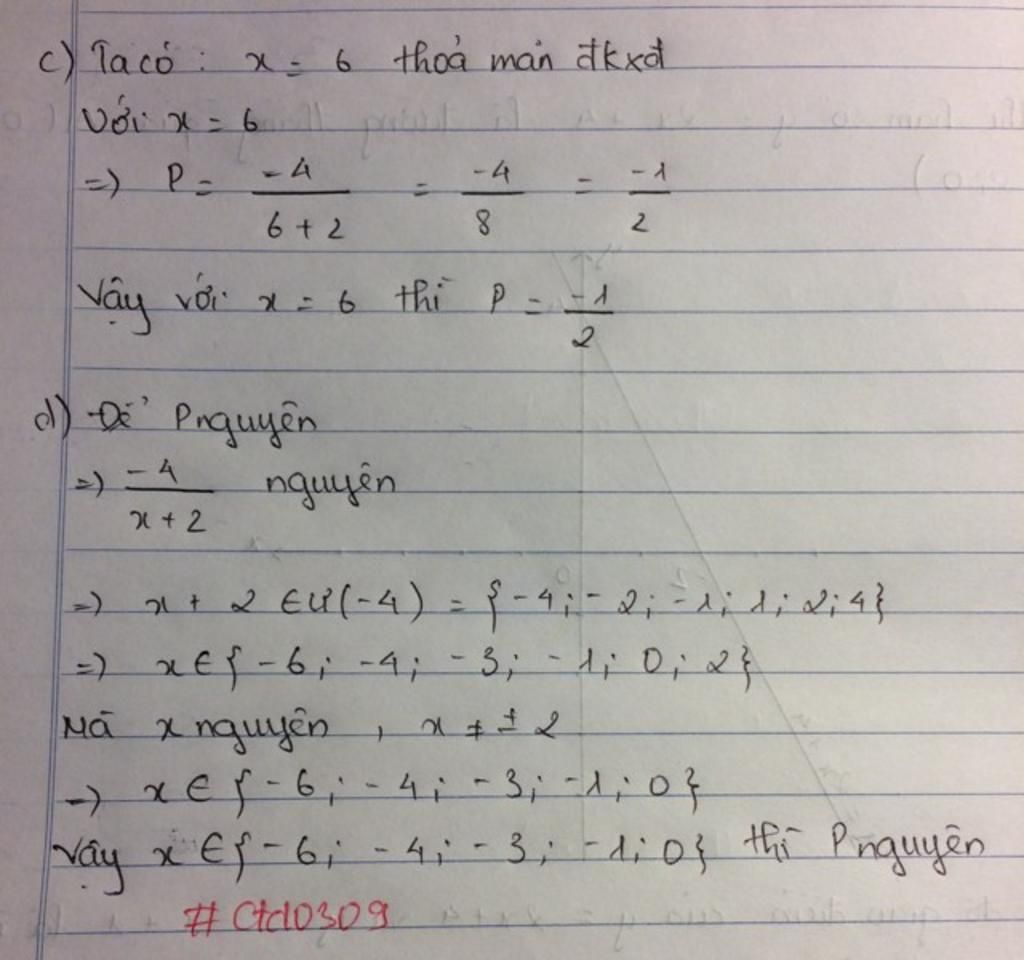 c) Ta có : x = 6 thoả mãn đkxđ
Với x = 6
=> P = -4/(6 + 2) = -4/8 = -1/2
Vậy với x = 6 thì P = -1/2
d) Để P nguyên
=> -4/(x + 2) nguyên
=> x + 2 ∈ Ư(-4) = {-4; -2; -1; 1; 2; 4}
=> x ∈ {-6; -4; -3; -1; 0; 2}
Mà x nguyên , x ≠ ± 2
-> x ∈ {-6; -4; -3; -1; 0}
Vậy x ∈ {-6; -4; -3; -1; 0} thì P nguyên
# Ctd0309